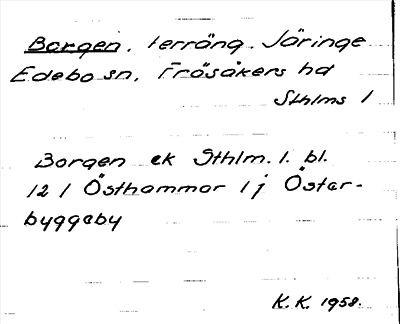 Borgen. terräng. Järinge
Edebo sn, Frösåkers hd
Sthlms l
Borgen ek Sthlm. l. bl.
12 l Östhammar l j Öster-
byggeby
K. K. 1958.